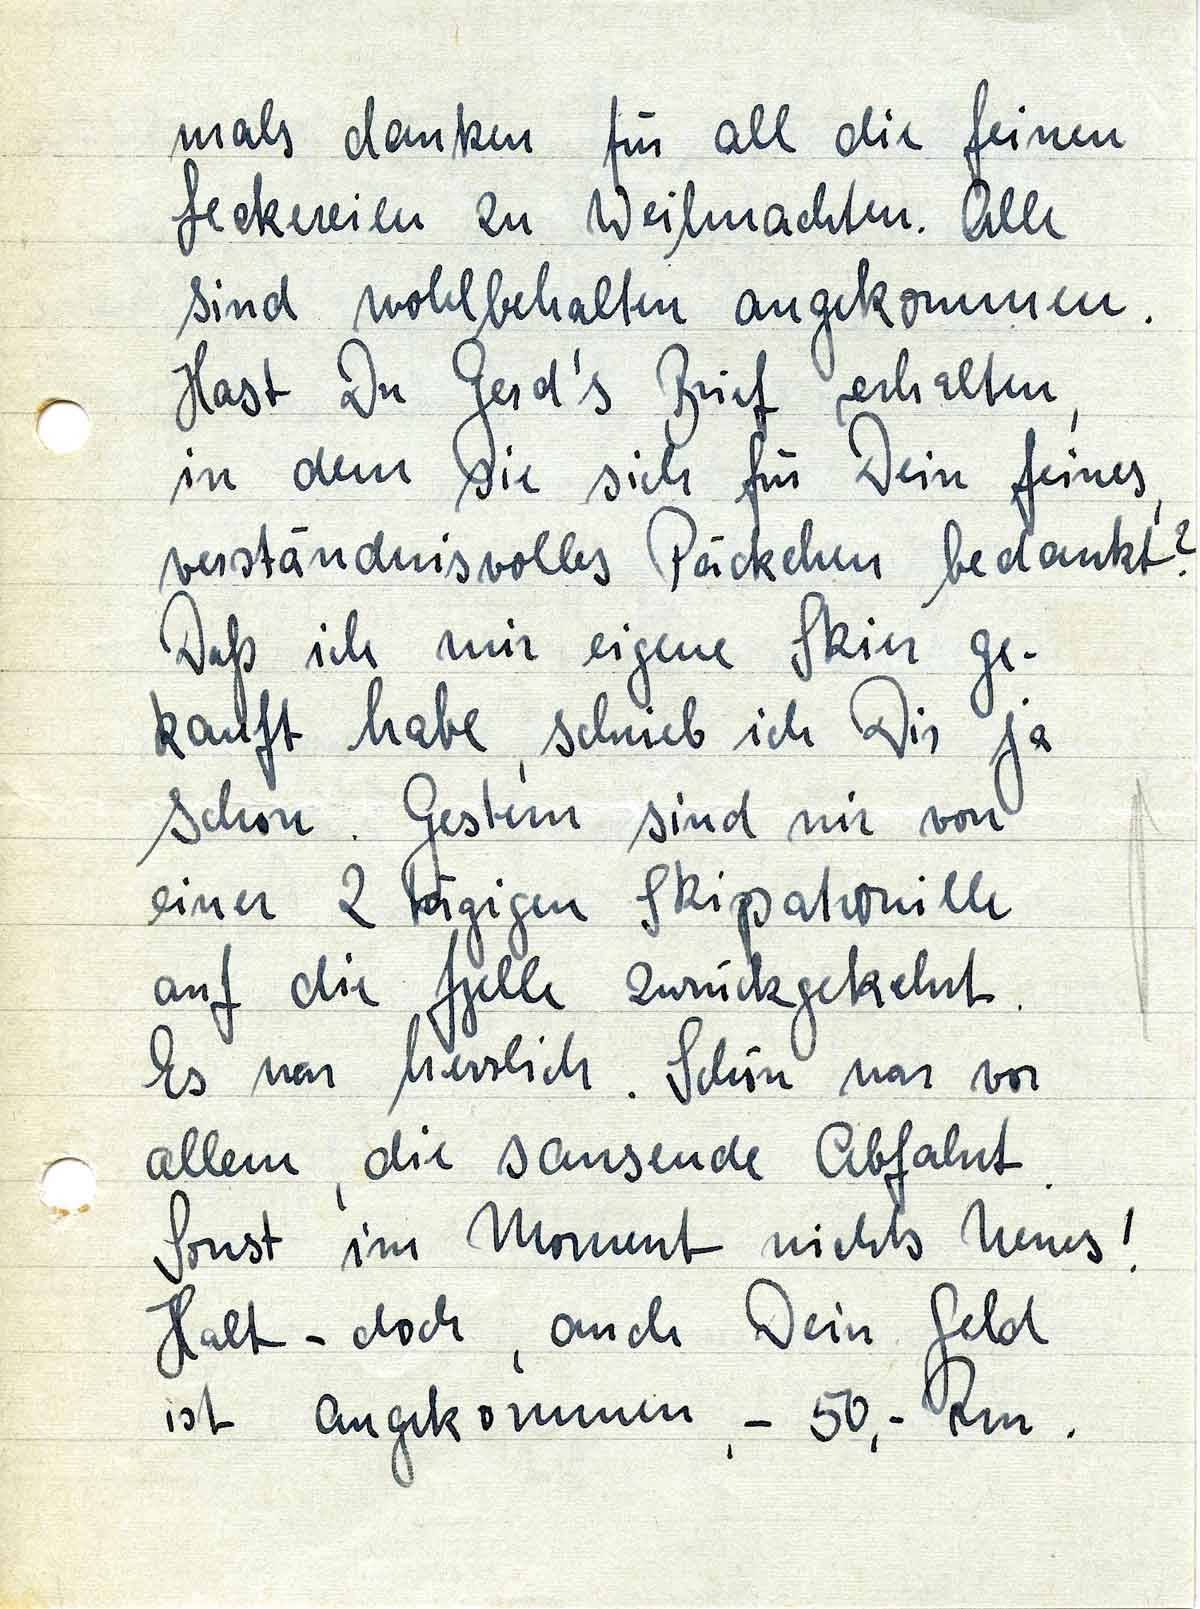 mals danken für all die feinen
Leckereien zu Weihnachten. Alle
sind wohlbehalten angekommen.
Hast Du Gerd's Brief erhalten,
in dem Sie sich für Dein feines,
verständnisvolles Päckchen bedankt?
Daß ich mir eigene Skier ge-
kauft habe, schrieb ich Dir ja
schon. Gestern sind wir von
einer 2 tägigen Skipatrouille
auf die Fjelle zurückgekehrt.
Es war herrlich. Schön war vor
allem, die sausende Abfahrt.
Sonst im Moment nichts Neues!
Halt - doch, auch Dein Geld
ist angekommen, - 50,- Rm.